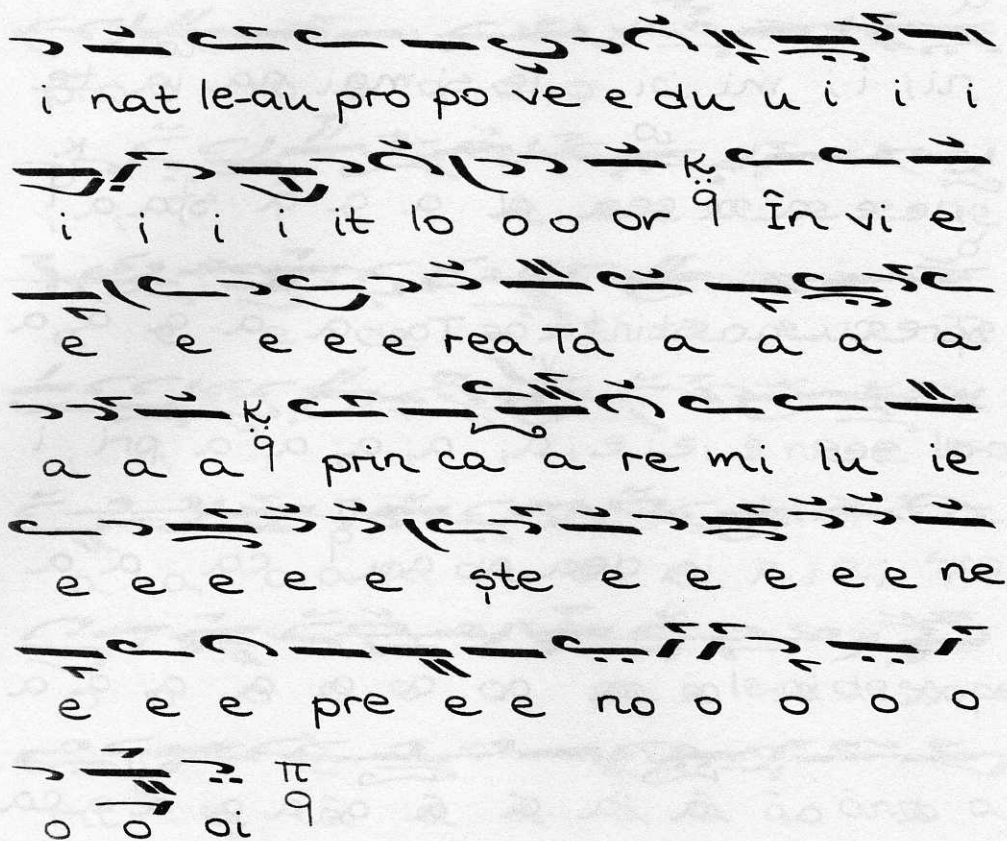 i nat le-au pro po ve e du u i i i
i i i i it lo o o or ϗ̈ q În vi e
e e e e e rea Ta a a a a
a a a ϗ̈ q prin ca a re mi lu ie
e e e e e ște e e e e e ne
e e e pre e e no o o o o
o o oi π q